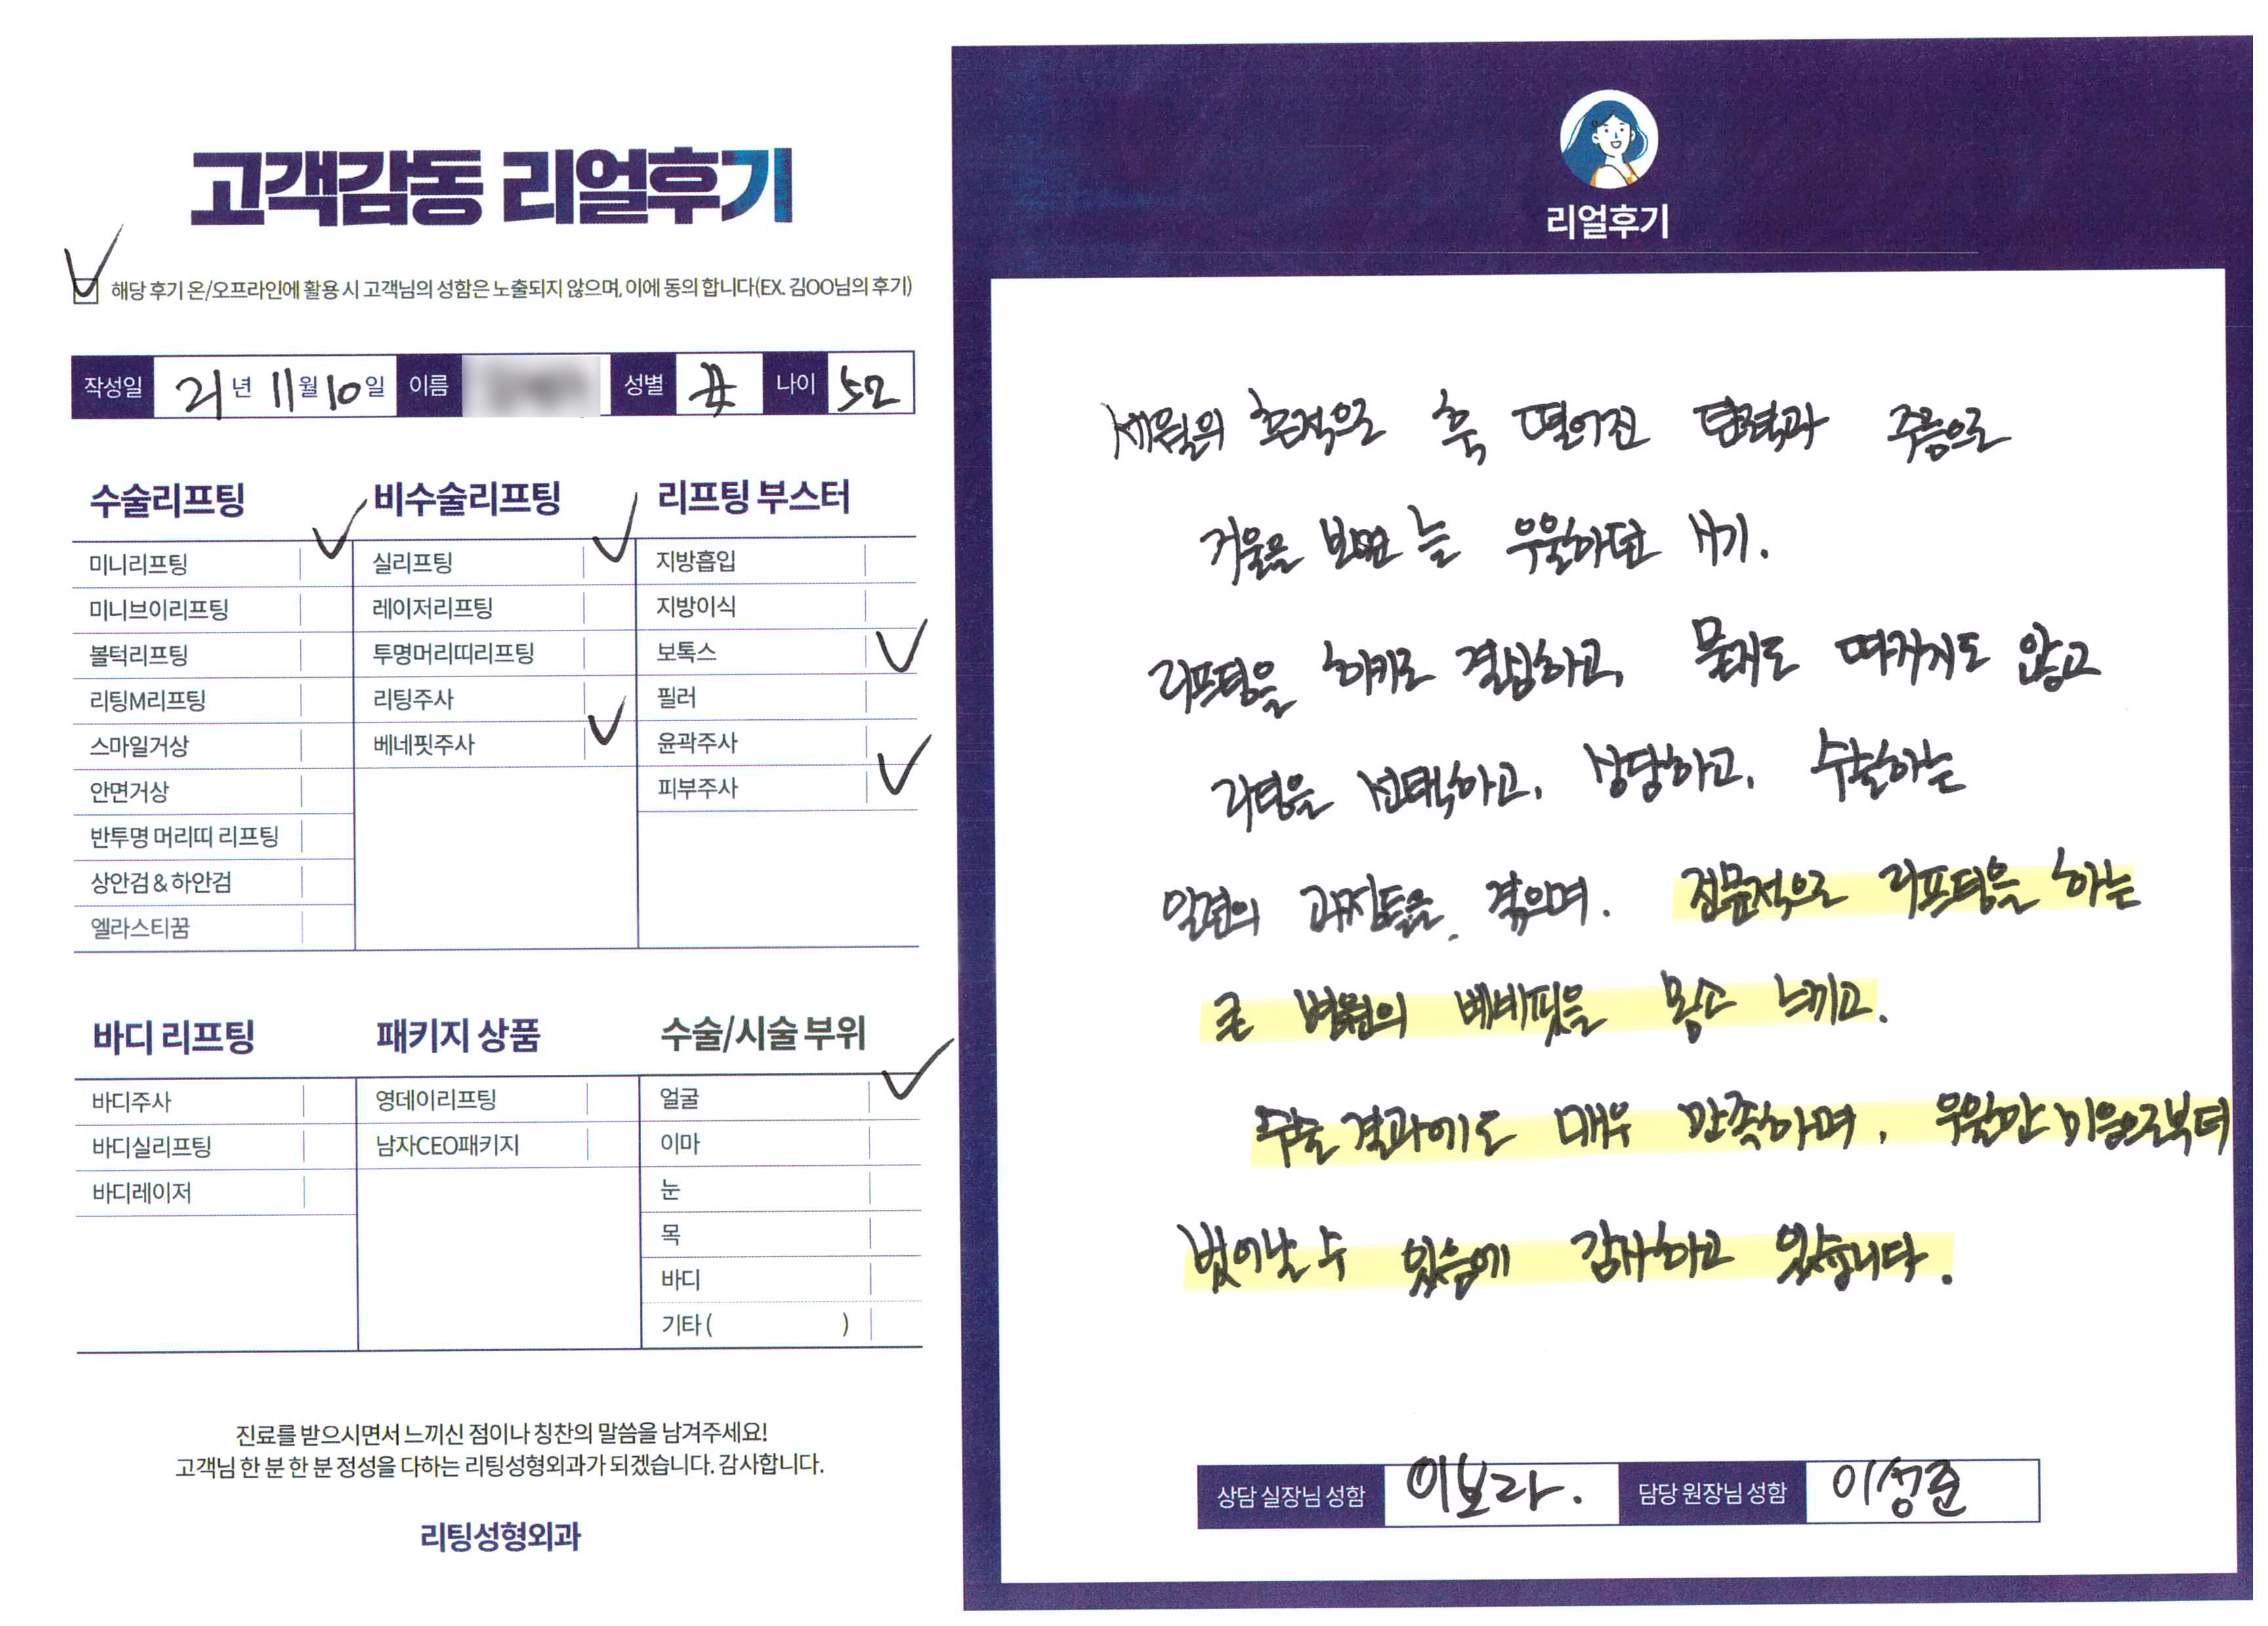 고객감동 리얼후기
해당 후기 온/오프라인에 활용 시 고객님의 성함은 노출되지 않으며, 이에 동의 합니다(EX. 김OO님의 후기)
작성일 21년 11월 10일 이름 성별 女 나이 52
수술리프팅
미니리프팅
미니브이리프팅
볼턱리프팅
리팅M리프팅
스마일거상
안면거상
반투명 머리띠 리프팅
상안검 & 하안검
엘라스티꿈
비수술리프팅
실리프팅
레이저리프팅
투명머리띠리프팅
리팅주사
베네핏주사
리프팅 부스터
지방흡입
지방이식
보톡스
필러
윤곽주사
피부주사
바디 리프팅
바디주사
바디실리프팅
바디레이저
패키지 상품
영데이리프팅
남자CEO패키지
수술/시술 부위
얼굴
이마
눈
목
바디
기타 ( )
진료를 받으시면서 느끼신 점이나 칭찬의 말씀을 남겨주세요!
고객님 한 분 한 분 정성을 다하는 리팅성형외과가 되겠습니다. 감사합니다.
리팅성형외과
리얼후기
세월의 흔적으로 훅 떨어진 탄력과 주름으로
거울을 보면 늘 우울하던 시기.
리프팅을 하기로 결심하고, 묻지도 따지지도 않고
리팅을 선택하고, 상담하고, 수술하는
일련의 과정들을 겪으며. 전문적으로 리프팅을 하는
큰 병원의 베네핏을 몸소 느끼고.
수술 결과에도 매우 만족하며, 우울한 마음으로부터
벗어날 수 있음에 감사하고 있습니다.
상담 실장님 성함 이보라.
담당 원장님 성함 이성준